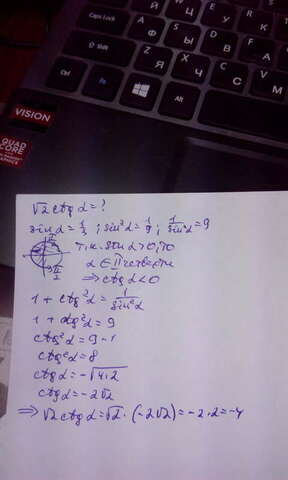 Caps Lock
Shift
Ctrl
Fn
Alt
Й
Ц
У
К
Е
Ф
Ы
В
А
П
Я
Ч
С
М
VISION
QUAD
CORE
√2 ctg α = ?
sin α = 1/3 ; sin²α = 1/9 ; 1/sin²α = 9
т.к. sin α > 0, то
α ∈ II четверти
⇒ ctg α < 0
1 + ctg²α = 1/sin²α
1 + ctg²α = 9
ctg²α = 9 - 1
ctg²α = 8
ctg α = -√4·2
ctg α = -2√2
⇒ √2 ctg α = √2 · (-2√2) = -2·2 = -4